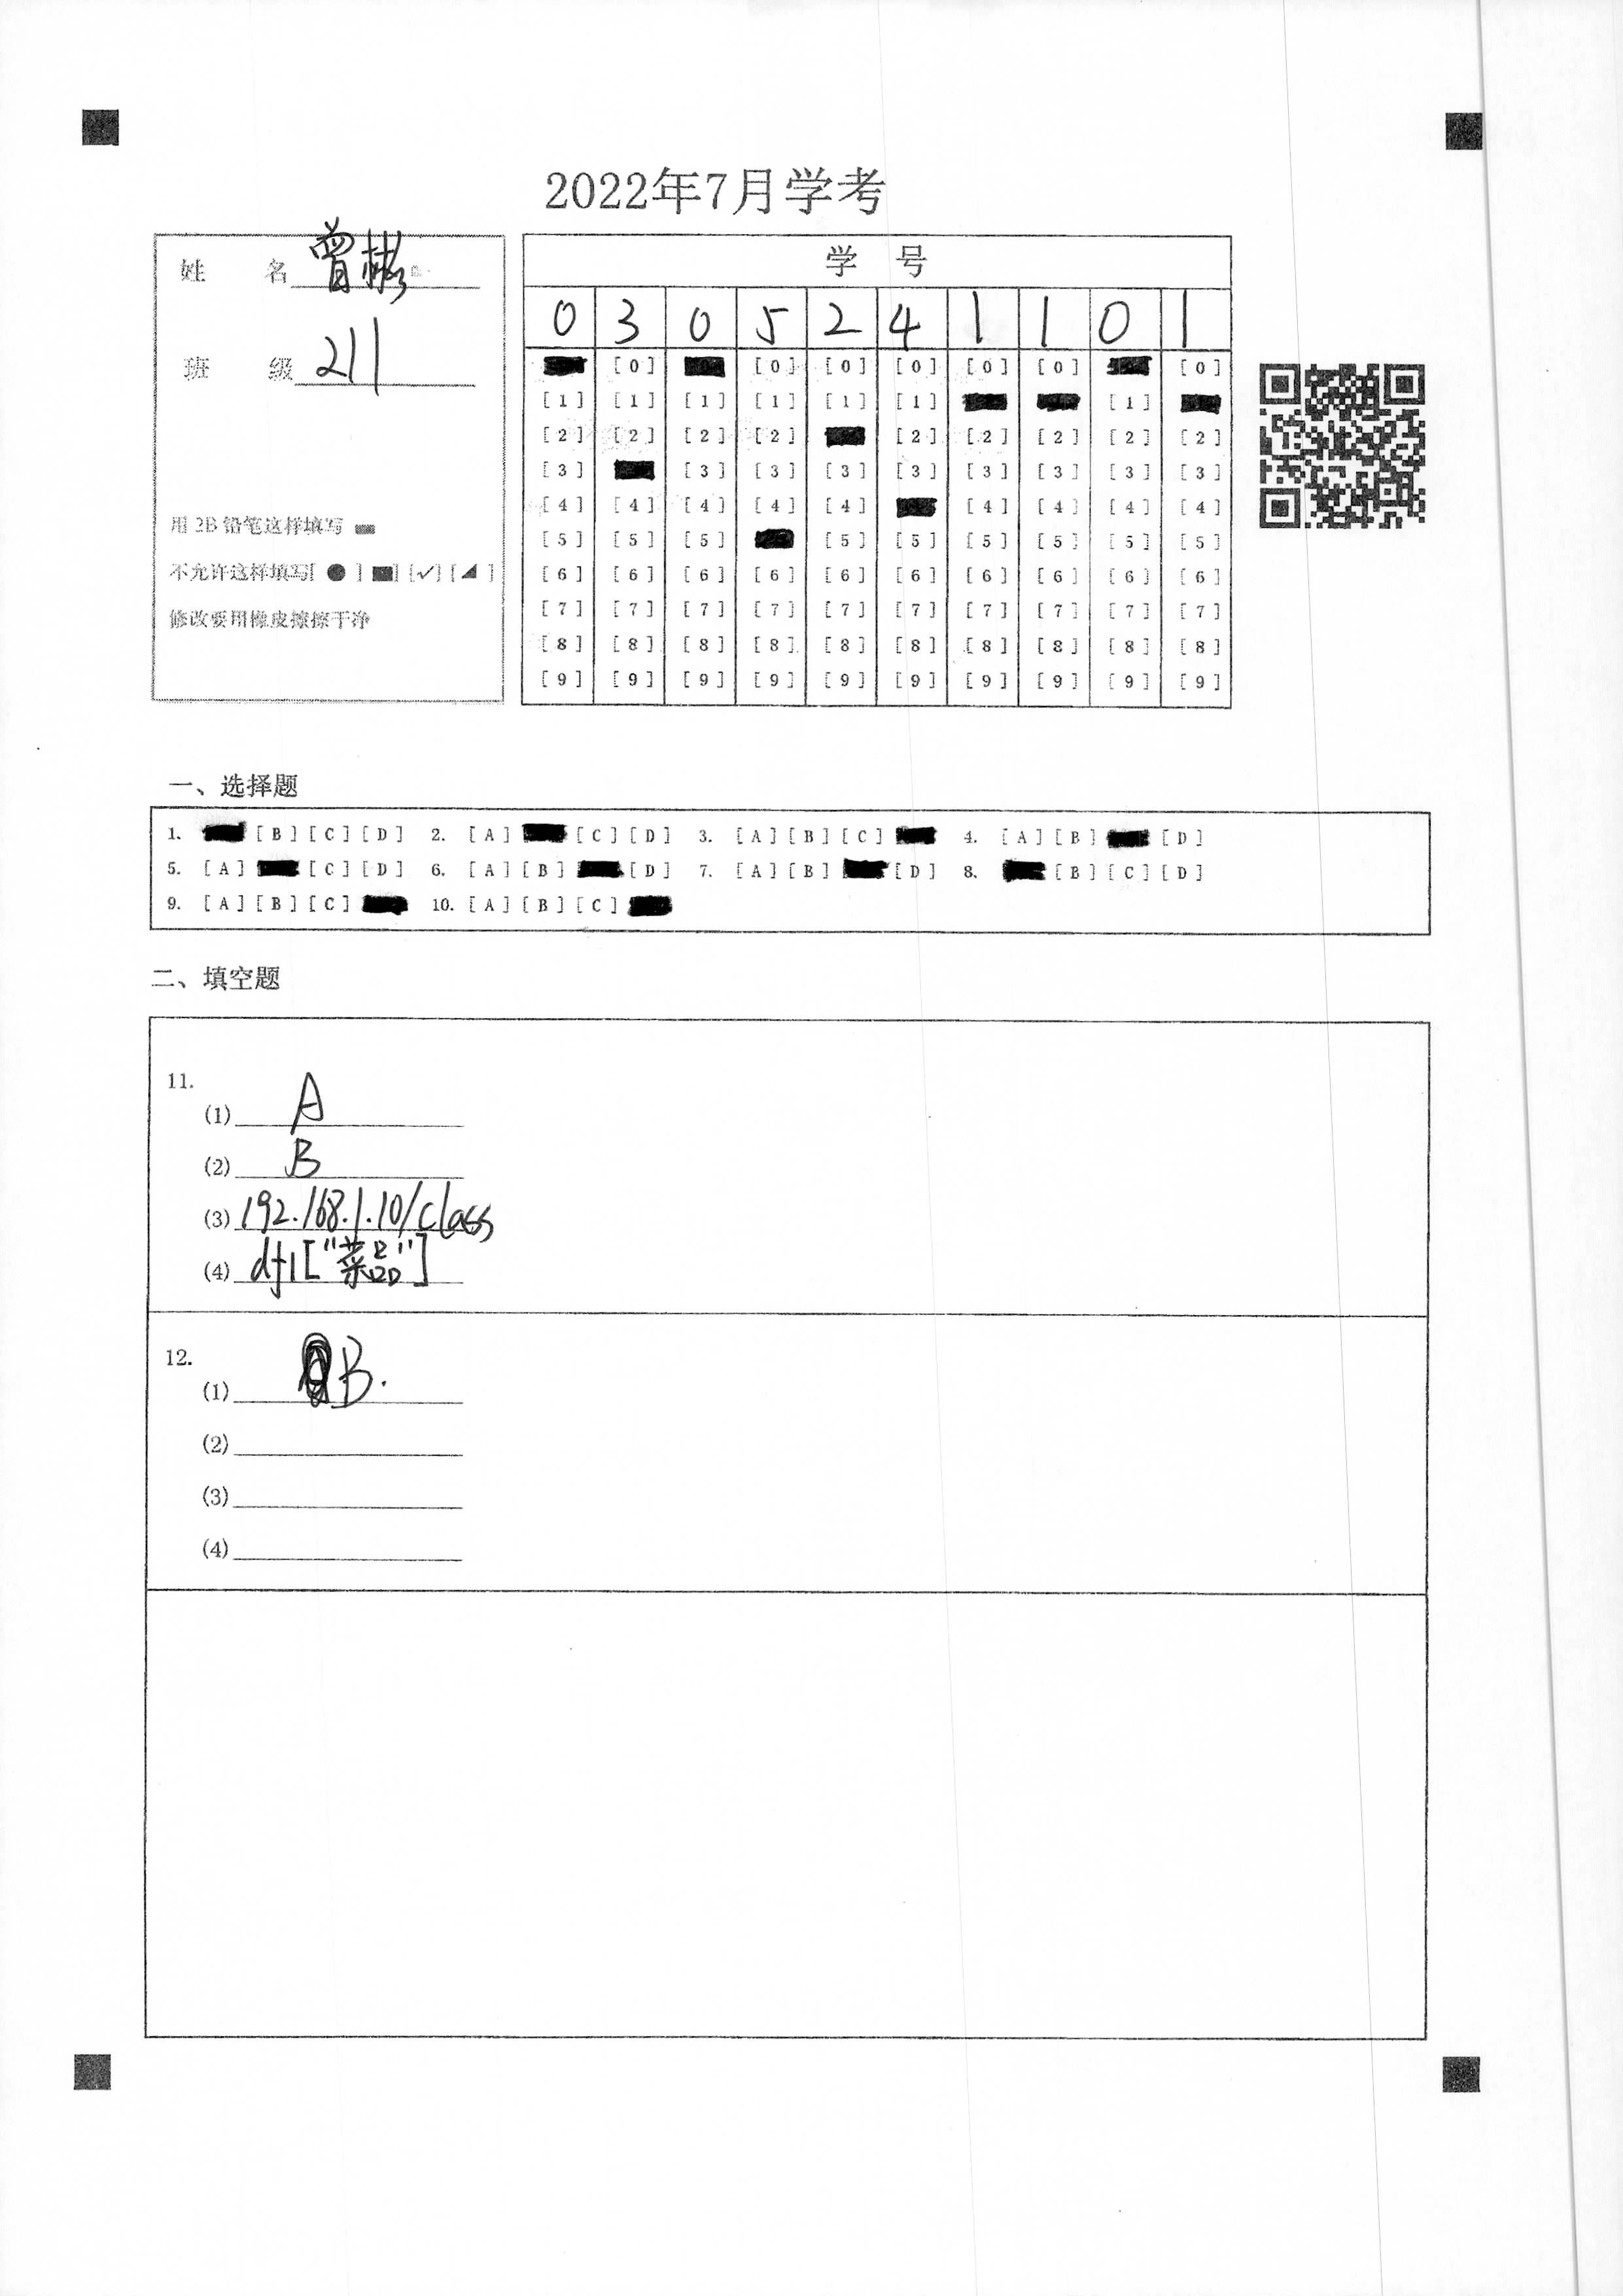 2022年7月学考
姓 名 曾彬
班 级 211
用 2B 铅笔这样填写
不允许这样填写[ ● ] [■] [✓] [◢ ]
修改要用橡皮擦擦干净
学 号
0 3 0 5 2 4 1 1 0 1
[0] [0] [0] [0] [0] [0] [0]
[1] [1] [1] [1] [1] [1] [1]
[2] [2] [2] [2] [2] [2] [2] [2] [2]
[3] [3] [3] [3] [3] [3] [3] [3] [3]
[4] [4] [4] [4] [4] [4] [4] [4] [4]
[5] [5] [5] [5] [5] [5] [5] [5] [5]
[6] [6] [6] [6] [6] [6] [6] [6] [6] [6]
[7] [7] [7] [7] [7] [7] [7] [7] [7] [7]
[8] [8] [8] [8] [8] [8] [8] [8] [8] [8]
[9] [9] [9] [9] [9] [9] [9] [9] [9] [9]
一、选择题
1. [B] [C] [D] 2. [A] [C] [D] 3. [A] [B] [C] 4. [A] [B] [D]
5. [A] [C] [D] 6. [A] [B] [D] 7. [A] [B] [D] 8. [B] [C] [D]
9. [A] [B] [C] 10. [A] [B] [C]
二、填空题
11.
(1) A
(2) B
(3) 192.168.1.10/class
(4) df1["菜品"]
12.
(1) B.
(2)
(3)
(4)